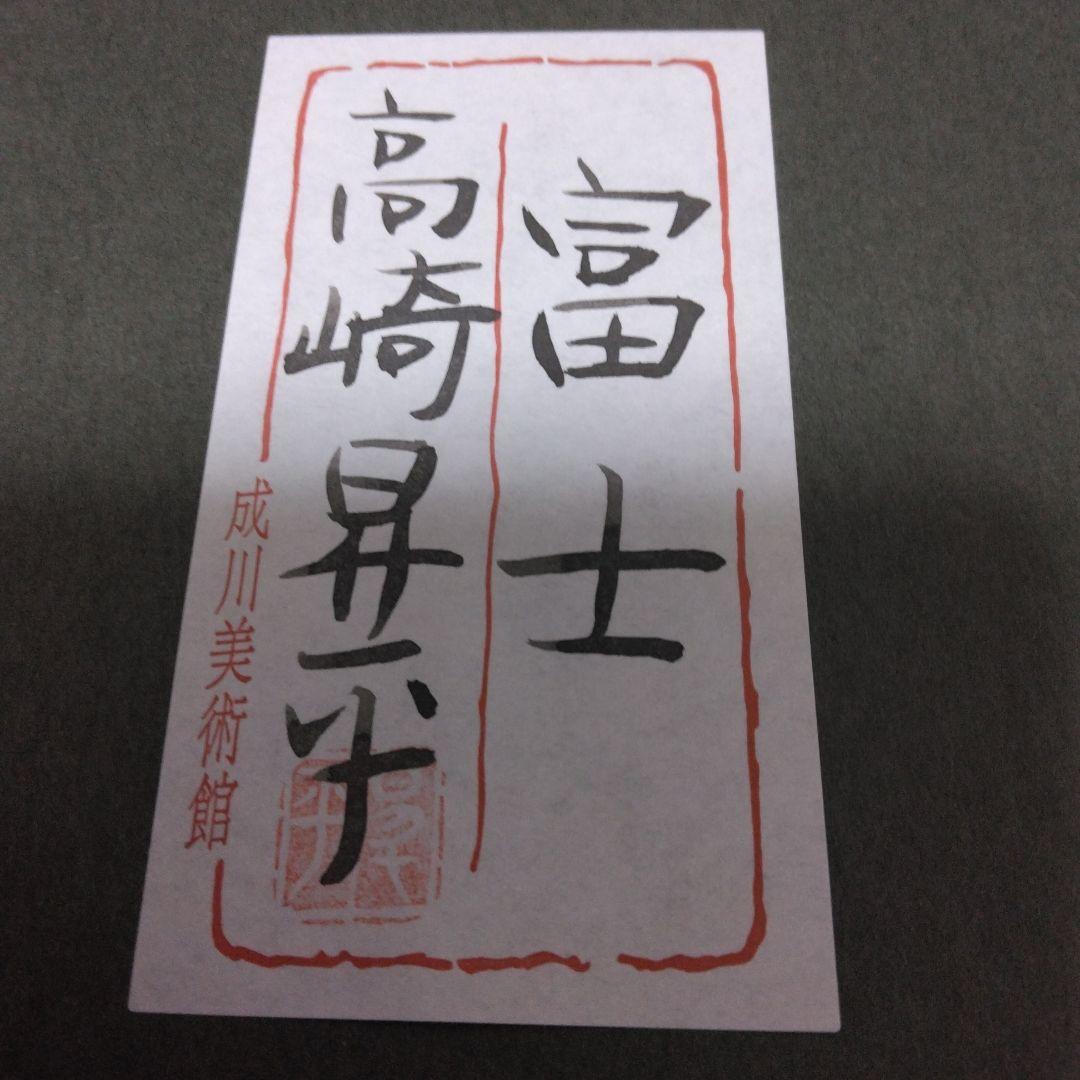 富士
高崎昇平
成川美術館